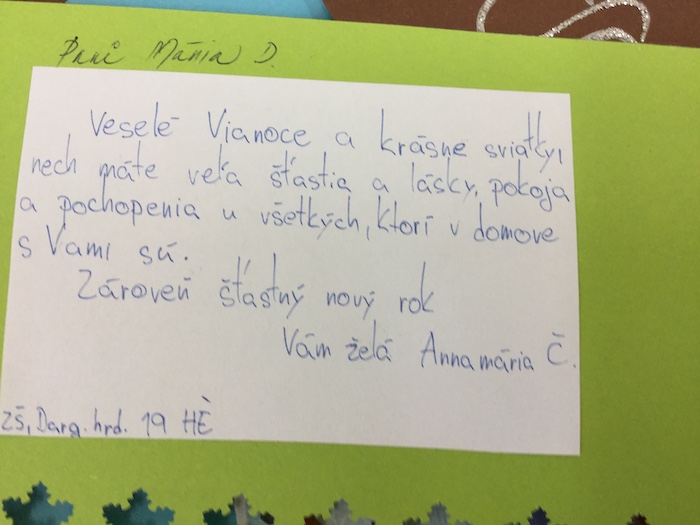 Pani Mária D.
Veselé Vianoce a krásne sviatky,
nech máte veľa šťastia a lásky, pokoja
a pochopenia u všetkých, ktorí v domove
s Vami sú.
Zároveň šťastný nový rok
Vám želá Annamária Č.
ZŠ, Darg. hrd. 19 HÈ